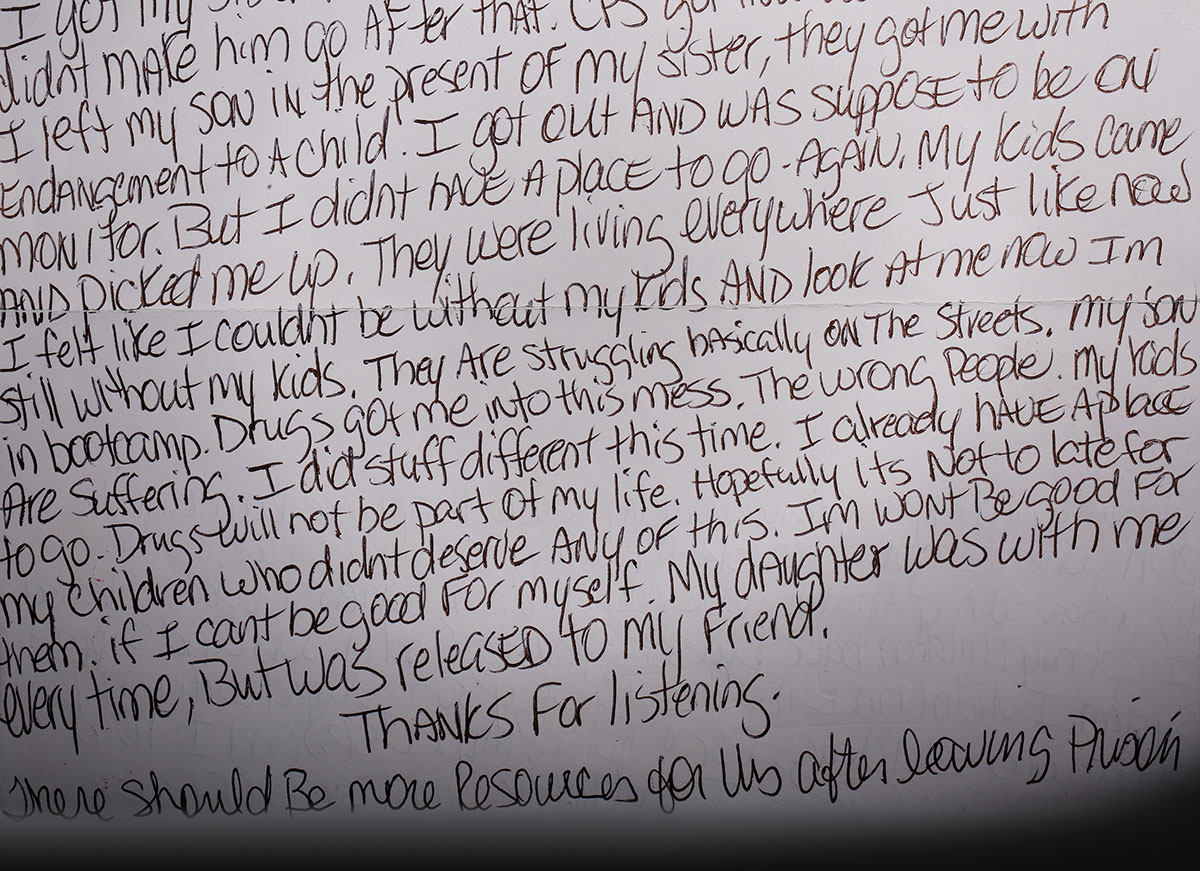 I got my
didnt make him go After that. CPS got
I left my son in the present of my sister, they got me with
Endangement to A child. I got out AND WAS suppose to be on
monitor. But I didnt hAVE A place to go -AgAiN. My kids came
AND picked me up. They were living everywhere Just like now
I felt like I couldnt be without my kids AND look At me now Im
still without my kids. They Are struggling basically on The streets. my son
in bootcamp. Drugs got me into this mess. The wrong People. my kids
Are suffering. I did stuff different this time. I already hAVE A place
to go. Drugs will not be part of my life. Hopefully its Not to late for
my children who didnt deserve ANy of this. Im wont Be good For
them. if I cant be good For myself. My daughter was with me
every time, But was released to my Friend.
ThANKS For listening.
There should Be more Resources for Us after leaving Prison